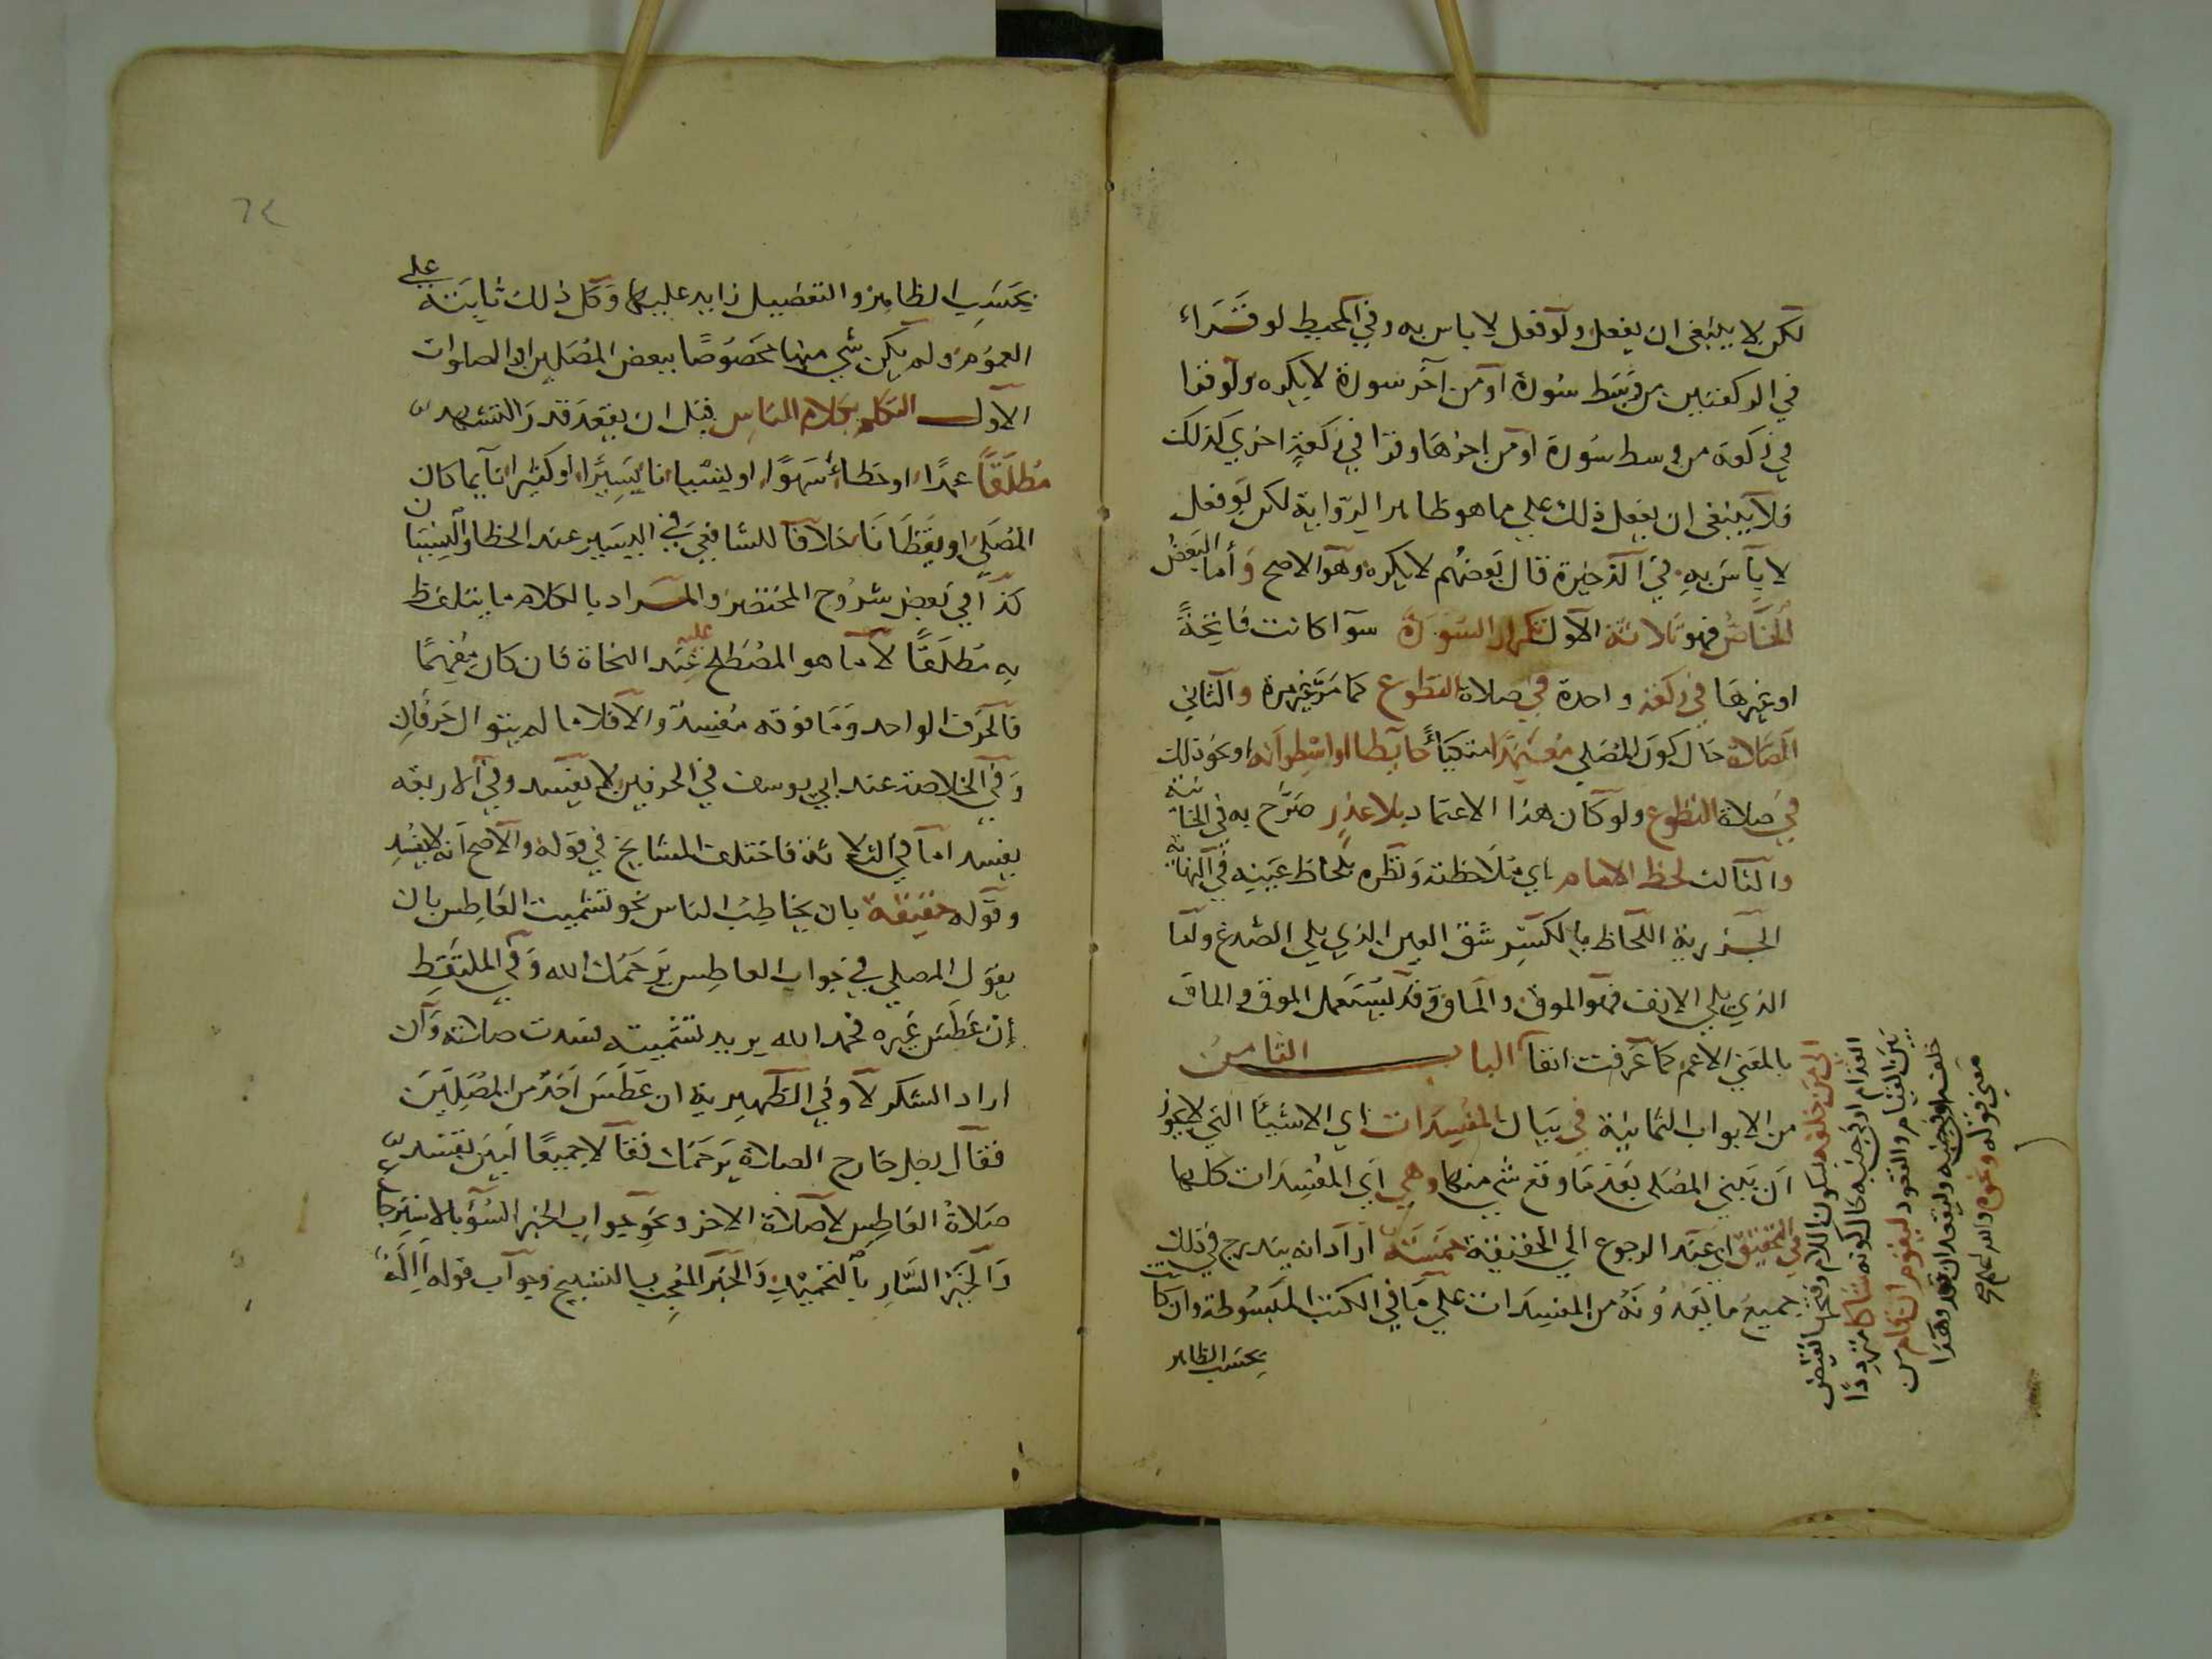 لكن لا ينبغي ان يفعل ولو فعل لا باس به وفي المحيط لو قراء
في الركعتين من وسط سورة او من آخر سورة لا يكره ولو قرا
في ركعة من وسط سورة او من اخرها وقرا في ركعة اخري كذلك
فلا ينبغي ان يفعل ذلك علي ما هو ظاهر الرواية لكن لو فعل
لا باس به في الذخيرة قال بعضهم لا يكره وهو الاصح وأما البعض
الخاص فهو ثلاثة الاول تكرار السورة سوآ كانت فاتحةً
او غيرها في ركعة واحدة في صلاة التطوع كما مر غير مرة والثاني
الصلاة حال كون المصلي معتمدا متكياً حايطا او اسطوانه او نحو ذلك
في صلاة التطوع ولو كان هذا الاعتماد بلا عذر صرح به في الخانية
والثالث لحظ الامام اي ملاحظته ونظره بلحاظ عينيه في النهاية
الجزرية اللحاظ بالكسر شق العين الذي يلي الصدغ واما
الذي يلي الانف فهو الموق والماق وقد يستعمل الموق والماق
بالمعني الاعم كما عرفت انفا الباب الثامن
من الابواب الثمانية في بيان المفسدات اي الاشيأ التي لا يجوز
ان يبني المصلي بعد ما وقع شي منها وهي اي المفسدات كلها
في التحقيق اي عند الرجوع الي الحقيقة خمسة اراد انه يندرج في ذلك
جميع ما يعدونه من المفسدات علي ما في الكتب المبسوطة وان كانت
بحسب الظاهر
القدام او في جنبه حال كونه شاكا مترددا
بين القيام والقعود ليقوم ان قام من
خلفه او في جنبه وليقعد ان قعد وهذا
معني قوله ونحوه والله اعلم
٦٤
بحسب الظاهر والتفصيل زايد عليها وكل ذلك ثابتة علي
العموم ولم يكن شي منها مخصوصًا ببعض المصلين او الصلوات
الاول التكلم بكلام الناس قبل ان يقعد قدر التشهد
مطلقًا عمدًا او خطاً سهوًا او نسيانا يسيرًا او كثيرا نآيما كان
المصلي او يقظانا خلافا للشافعي في اليسير عند الخطا والنسيان
كذا في بعض شروح المختصر والمراد بالكلام ما يتلفظ
به مطلقًا لا ما هو المصطلح عليه عند النحاة فان كان مفهمًا
فالحرف الواحد وما فوقه مفسد والا فلا ما لم يتوال حرفان
وفي الخلاصة عند ابي يوسف في الحرفين لا يفسد وفي الاربعة
يفسد اما في الثلاثة فاختلف المشايخ في قوله والاصح انه لا يفسد
وقوله حقيقة بان يخاطب الناس نحو تشميت العاطس بان
يقول المصلي في جواب العاطس يرحمك الله وفي الملتقط
إن عطس غيره فحمد الله يريد تشميته فسدت صلاته وان
اراد الشكر لا وفي الظهيرية ان عطس احد من المصليين
فقال رجل خارج الصلاة يرحمك فقالا جميعًا آمين تفسد
صلاة العاطس لا صلاة الاخر ونحو جواب الخبر السوء بالاسترجاع
والخبر السار بالتحميد والخبر المعجب بالتسبيح وجواب قوله االه